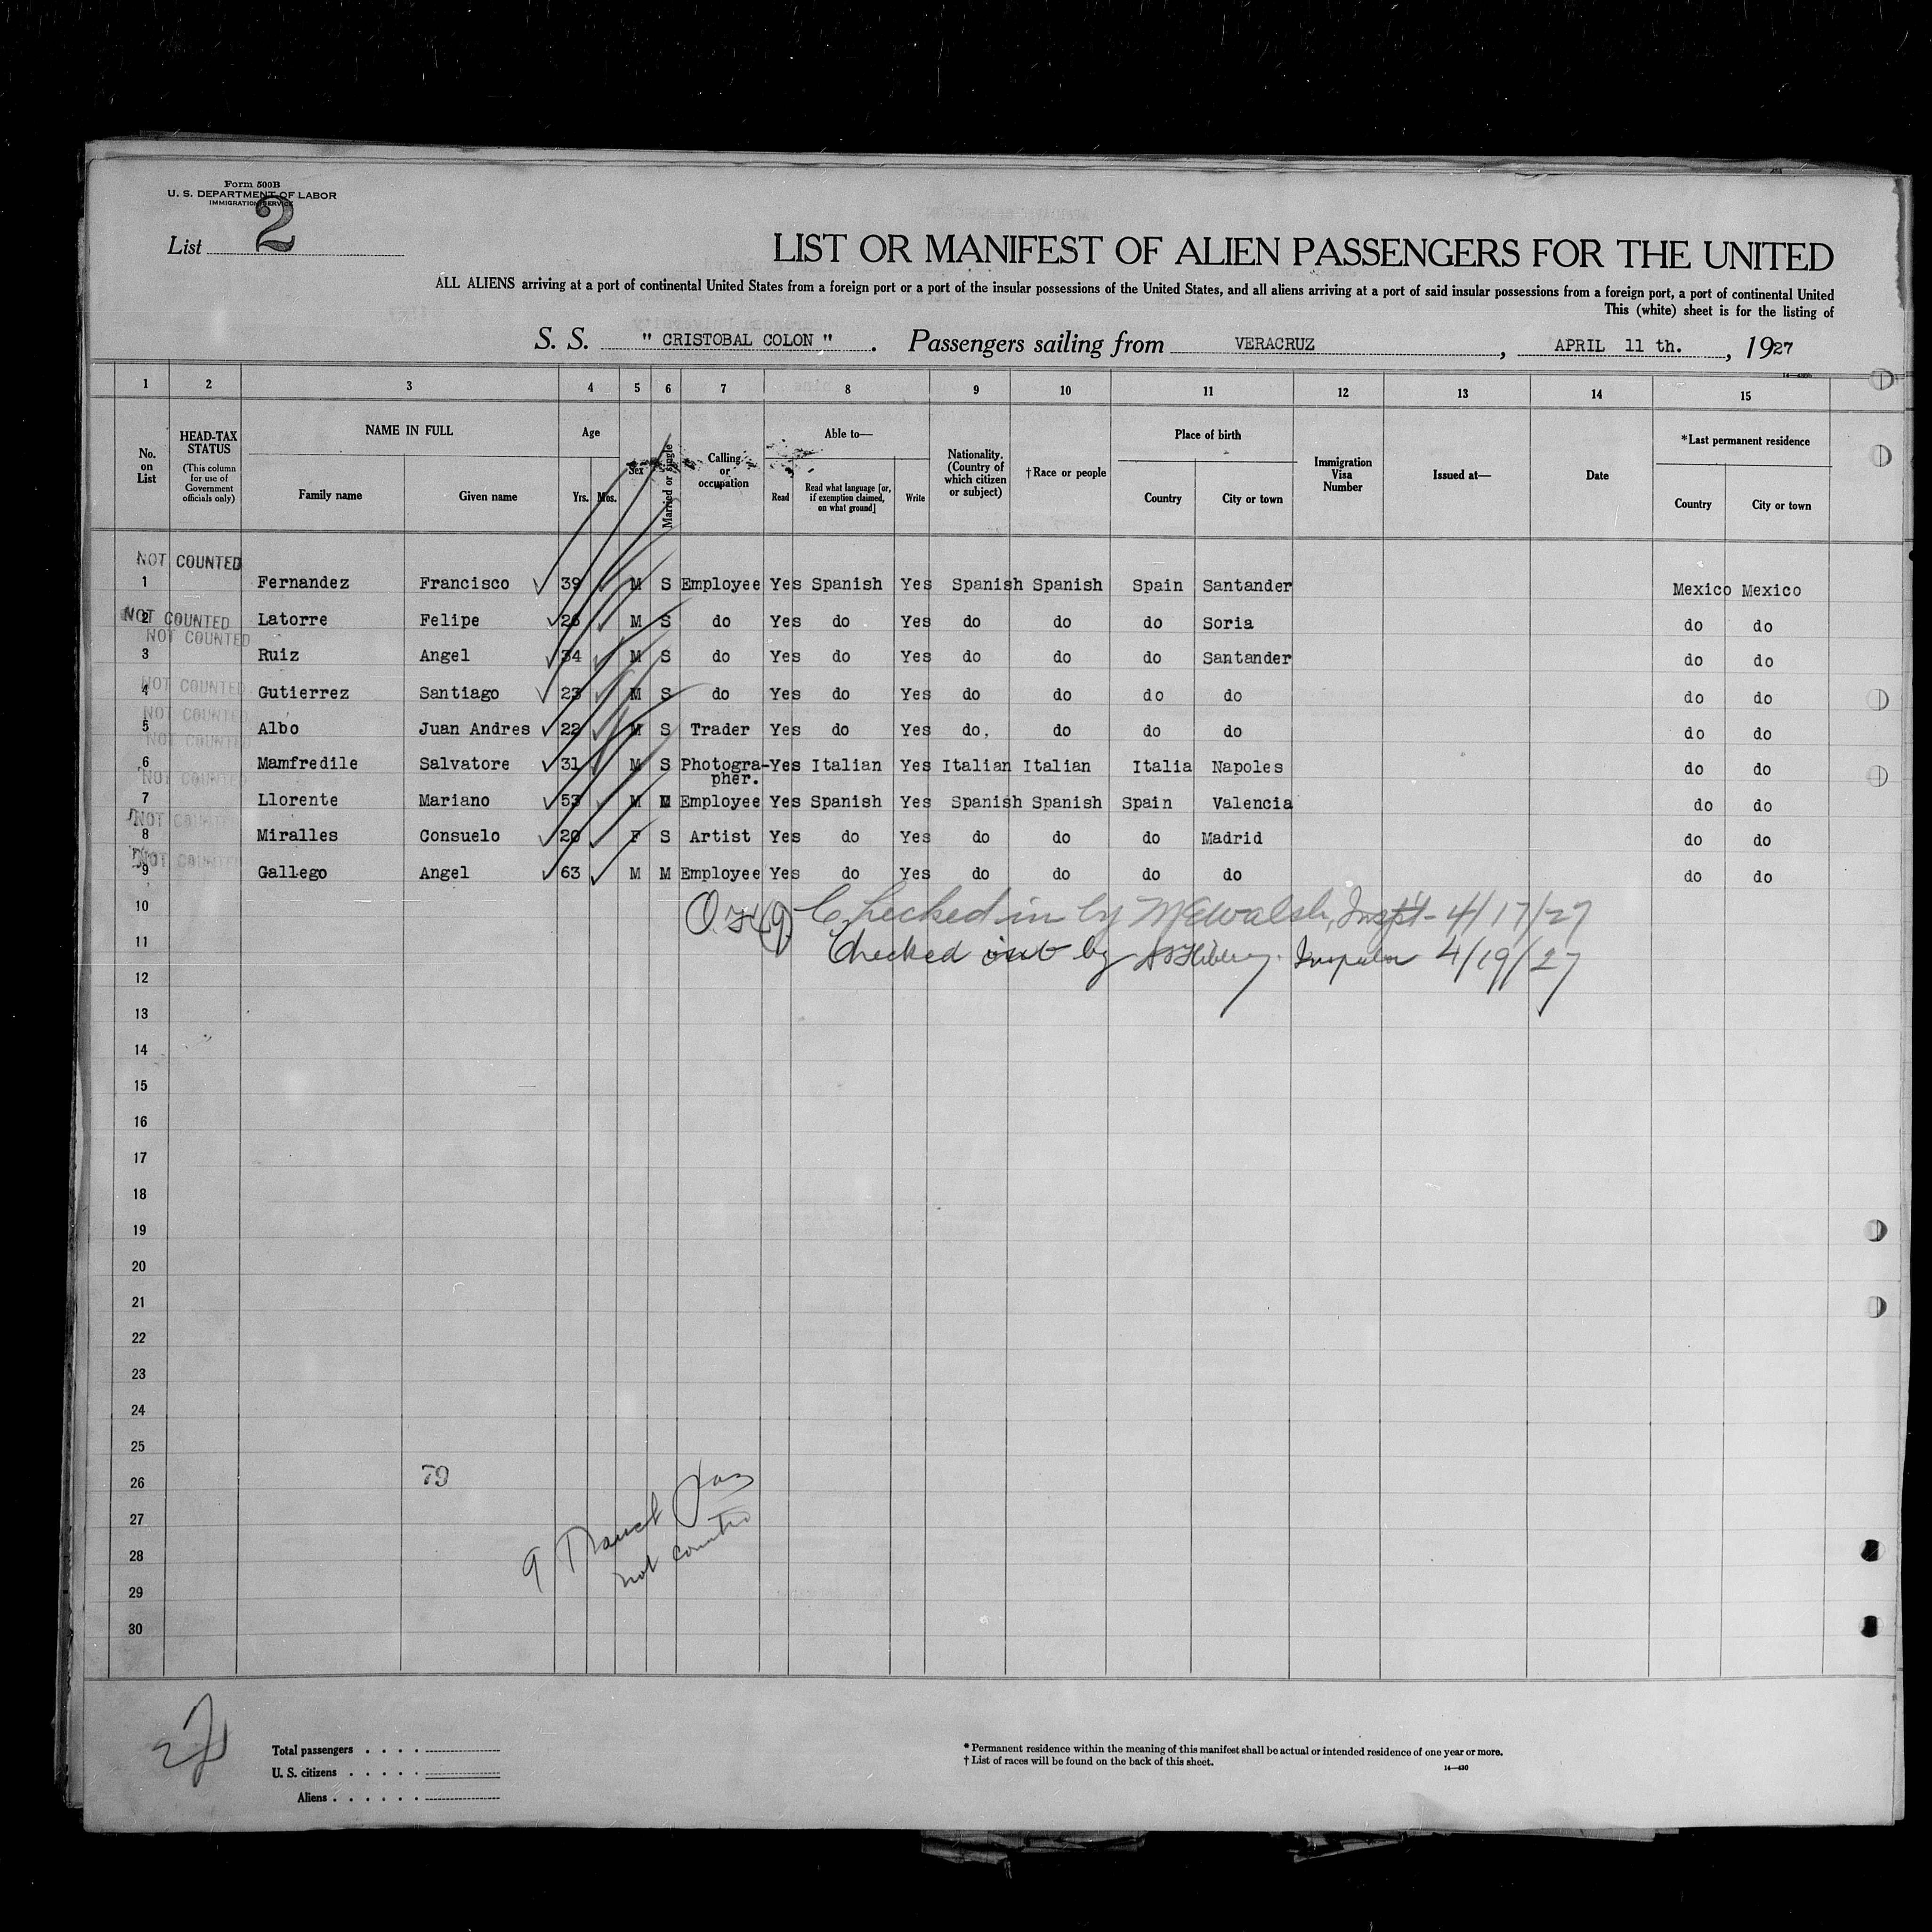 Form 500B
U. S. DEPARTMENT OF LABOR
IMMIGRATION SERVICE
List 2
LIST OR MANIFEST OF ALIEN PASSENGERS FOR THE UNITED
ALL ALIENS arriving at a port of continental United States from a foreign port or a port of the insular possessions of the United States, and all aliens arriving at a port of said insular possessions from a foreign port, a port of continental United
This (white) sheet is for the listing of
S. S. " CRISTOBAL COLON " . Passengers sailing from VERACRUZ , APRIL 11 th. , 1927
1 2 3 4 5 6 7 8 9 10 11 12 13 14 15
No. on List
HEAD-TAX STATUS (This column for use of Government officials only)
NAME IN FULL
Family name Given name
Age
Yrs. Mos.
Sex
Married or single
Calling or occupation
Able to—
Read
Read what language [or, if exemption claimed, on what ground]
Write
Nationality. (Country of which citizen or subject)
†Race or people
Place of birth
Country City or town
Immigration Visa Number
Issued at—
Date
*Last permanent residence
Country City or town
NOT COUNTED
1 Fernandez Francisco 39 M S Employee Yes Spanish Yes Spanish Spanish Spain Santander Mexico Mexico
NOT COUNTED
2 Latorre Felipe 26 M S do Yes do Yes do do do Soria do do
NOT COUNTED
3 Ruiz Angel 34 M S do Yes do Yes do do do Santander do do
NOT COUNTED
4 Gutierrez Santiago 23 M S do Yes do Yes do do do do do do
NOT COUNTED
5 Albo Juan Andres 22 M S Trader Yes do Yes do. do do do do do
NOT COUNTED
6 Mamfredile Salvatore 31 M S Photogra-pher. Yes Italian Yes Italian Italian Italia Napoles do do
NOT COUNTED
7 Llorente Mariano 53 M M Employee Yes Spanish Yes Spanish Spanish Spain Valencia do do
NOT COUNTED
8 Miralles Consuelo 20 F S Artist Yes do Yes do do do Madrid do do
NOT COUNTED
9 Gallego Angel 63 M M Employee Yes do Yes do do do do do do
10 (9) Checked in by Inspt- 4/17/27
11 Checked out by Inspector 4/19/27
12
13
14
15
16
17
18
19
20
21
22
23
24
25
26 79
27
28
29
30
9 Transit
not counted
Total passengers . . . .
U. S. citizens . . . . .
Aliens . . . . . .
* Permanent residence within the meaning of this manifest shall be actual or intended residence of one year or more.
† List of races will be found on the back of this sheet.
14—430